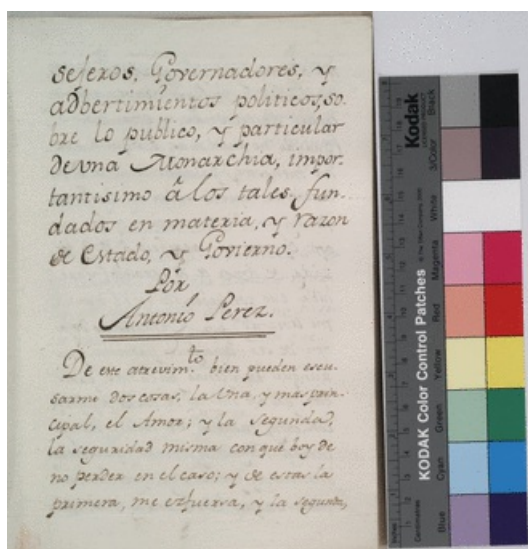 sejeros. Governadores, y
adbertimientos politicos, so
bre lo publico, y particular
de una Monarchia, impor-
tantisimo â los tales. fun-
dados en materia, y razon
de Estado, y Govierno.
Por
Antonio Perez.
De este atrevim.to bien pueden escu-
sarme dos cosas, la Una, y mas prin-
cipal, el Amor; y la segunda,
la seguridad misma con què boy de
no perder en el caso; y de estas la
primera, me esfuersa, y la segunda,
Kodak
LICENSED PRODUCT
Black
3/Color
White
Magenta
Red
Yellow
Green
Cyan
Blue
KODAK Color Control Patches
© The Tiffen Company, 2000
Centimetres
Inches